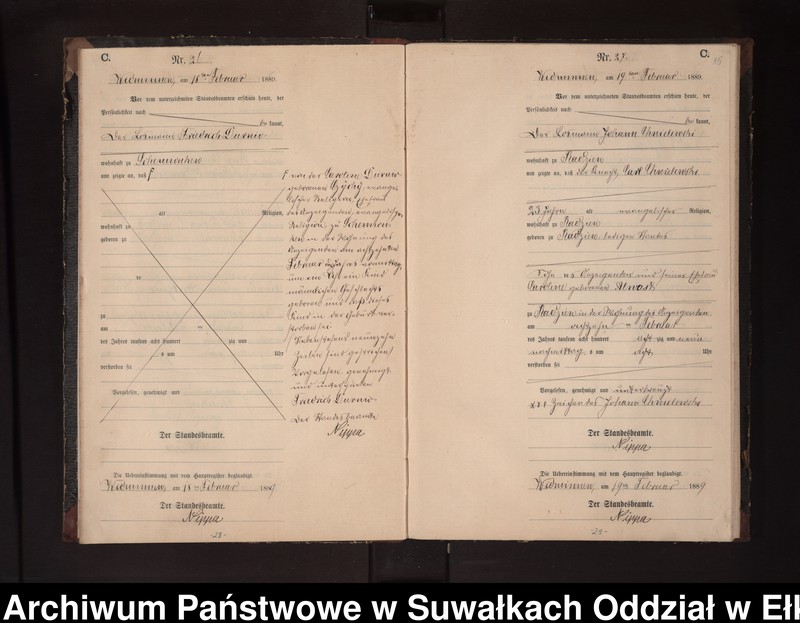 C.
Nr. 26
Widminnen, am 18ten Februar 1889.
Vor dem unterzeichneten Standesbeamten erschien heute, der
Persönlichkeit nach
be kannt,
Der Losmann Friedrich
wohnhaft zu
und zeigte an, daß
alt Religion,
wohnhaft zu
geboren zu
zu
zu
am
des Jahres tausend acht hundert zig und
um Uhr
verstorben sei
Vorgelesen, genehmigt und
Der Standesbeamte.
Die Uebereinstimmung mit dem Hauptregister beglaubigt
Widminnen, am 18ten Februar 1889
Der Standesbeamte.
Nippa
-28-
von der Caroline
geborenen evange-
lischer Religion, Ehefrau
des Anzeigenden, evangelischer
Religion, zu
in der Wohnung des
Anzeigenden am achtzehnten
Februar
um ein Uhr ein Kind
männlichen Geschlechts
geboren und daß dieses
Kind in der Geburt ver-
storben sei
Zeilen sind gestrichen
Vorgelesen, genehmigt
und unterschrieben
Friedrich
Der Standesbeamte
Nippa
Nr. 27
C.
Widminnen, am 19ten Februar 1889.
Vor dem unterzeichneten Standesbeamten erschien heute, der
Persönlichkeit nach
be kannt,
Der Losmann Johann Chmielewski
wohnhaft zu Radzien
und zeigte an, daß der Knecht Carl Chmielewski
23 Jahre alt evangelischer Religion,
wohnhaft zu Radzien
geboren zu Radzien, ledigen Standes
Sohn des Anzeigenden und seiner Ehefrau
Caroline geborenen
zu Radzien in der Wohnung des Anzeigenden
am achtzehn ten Februar
des Jahres tausend acht hundert acht zig und neun
nachmittags um acht Uhr
verstorben sei
Vorgelesen, genehmigt und unterkreuzt
+++ Zeichen des Johann Chmielewski
Der Standesbeamte.
Nippa
Die Uebereinstimmung mit dem Hauptregister beglaubigt
Widminnen, am 19ten Februar 1889
Der Standesbeamte.
Nippa
-29-
Archiwum Państwowe w Suwałkach Oddział w Ełk